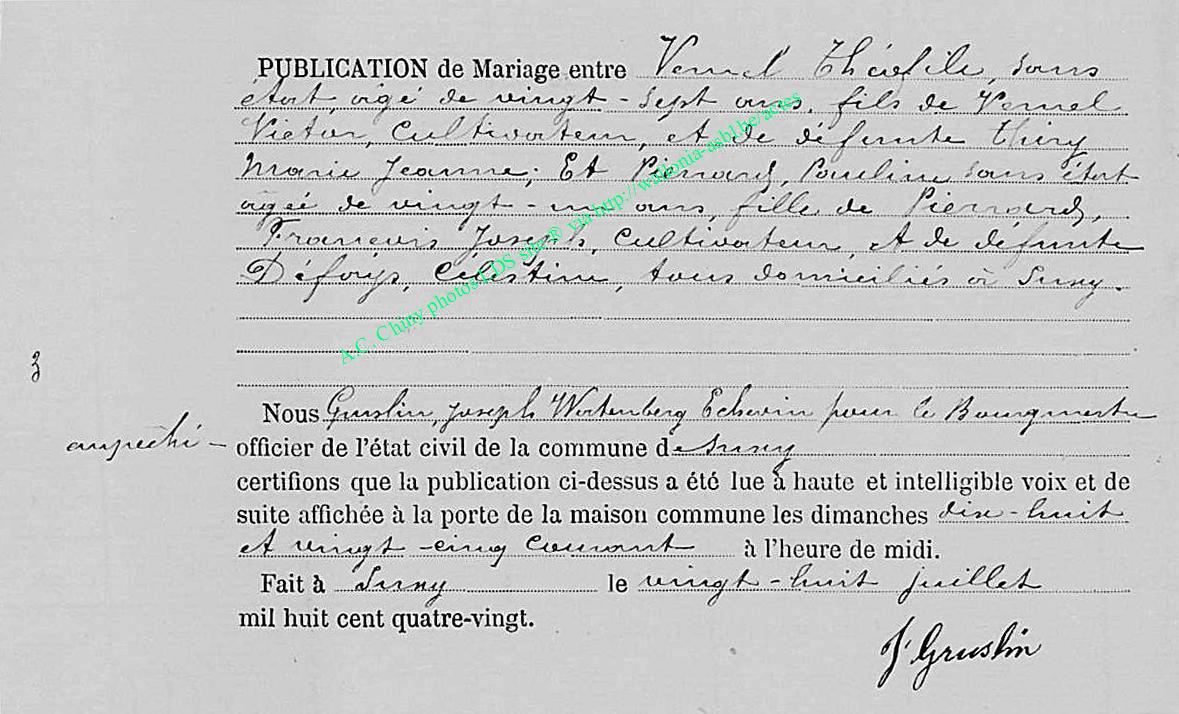 PUBLICATION de Mariage entre Vernel Théofile, sans
état, âgé de vingt-sept ans, fils de Vernel
Victor, Cultivateur, et de défunte Thiry
Marie Jeanne; Et Pierrard, Pauline sans état
âgée de vingt-un ans, fille de Pierrard,
François Joseph, cultivateur, et de défunte
Défoys, Célestine, tous domiciliés à Suxy.
A.C. Chiny photos LDS site ® via http://wallonia-asbl.be/actes
3
Nous Gruslin, Joseph Wertenberg Echevin pour le Bourgmestre
empêché – officier de l'état civil de la commune de Suxy
certifions que la publication ci-dessus a été lue à haute et intelligible voix et de
suite affichée à la porte de la maison commune les dimanches dix-huit
et vingt-cinq courant à l'heure de midi.
Fait à Suxy le vingt-huit juillet
mil huit cent quatre-vingt.
J Gruslin